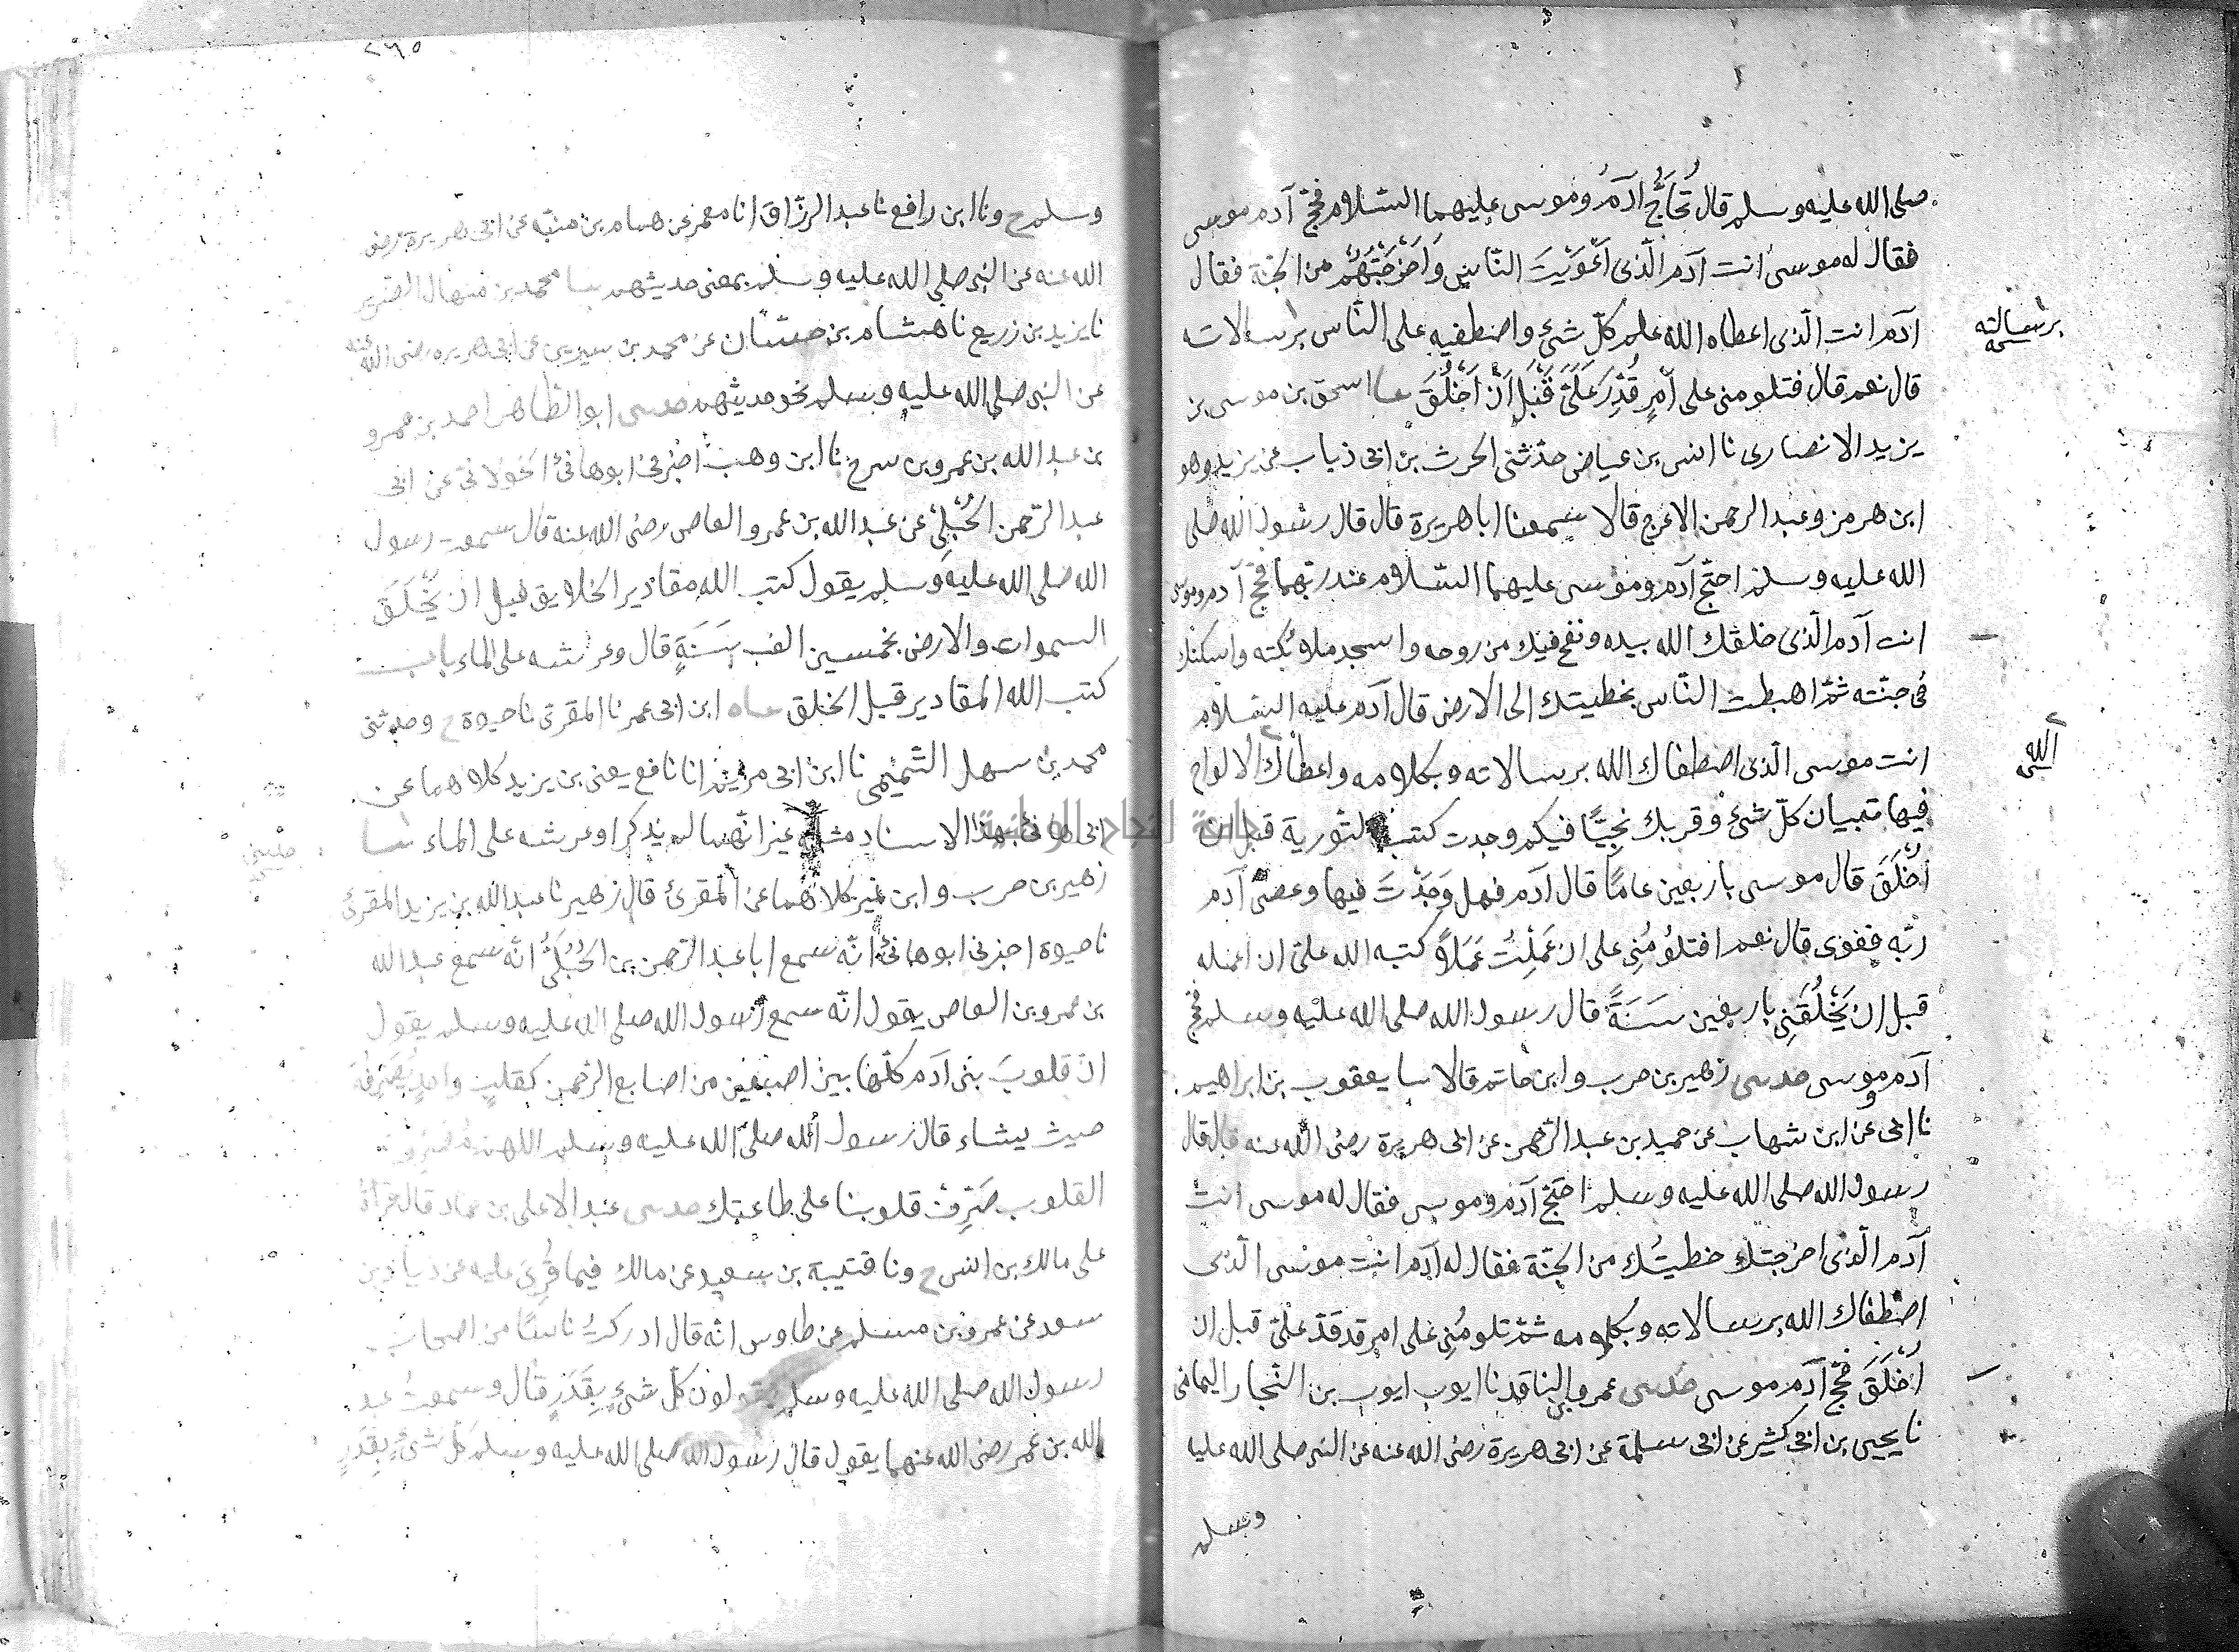 صلى الله عليه وسلم قال تُحَاجَّ ادَمُ وموسى عليهما السّلام فحجّ آدم موسى
فقال له موسى انت آدم الّذى اَغْوَيْتَ النّاسَ وَاَخْرَجْتَهُمْ من الجنّة فقال
ادم انت الّذى اعطاه الله علم كلّ شئ واصطفيه على الناس برسالاته
برسالته
قال نعم قال فتلومنى على اَمْرٍ قُدِّرَ عَلَىَّ قَبْلَ اَنْ اُخْلَقَ حدثنا اسحق بن موسى بن
يزيد الانصارى نا انس بن عياض حدّثنى الحرث بن ابى ذباب عن يزيد وهو
ابن هرمز وعبد الرحمن الاعرج قالا سمعنا ابا هريرة قال قال رسول الله صلى
الله عليه وسلم احتجّ آدم وموسى عليهما السّلام عند ربّهما فحجّ آدم موسى
انت آدم الّذى خلقك الله بيده ونفخ فيك من روحه واسجد ملائكته واسكنك
فى جنّته ثمّ اهبطت النّاس بخطيتك الى الارض قال آدم عليه السّلام
انت موسى الّذى اصطفاك الله برسالاته وبكلامه واعطاك الالواح
الله
فيها تبيان كلّ شئ وقربك نجيّا فبكم وجدت كتب التّورية قبل ان
اُخْلَقَ قال موسى باربعين عامًا قال آدم فهل وَجَدْتَ فيها وعصى آدم
ربّه فغوى قال نعم افتلومُنِى على ان عَمِلْتُ عَمَلاً كتبه الله علىّ ان اعمله
قبل ان يَخْلُقَنِى باربعين سَنَةً قال رسول الله صلى الله عليه وسلم فحجّ
آدم موسى حدثنى زهير بن حرب وابن حاتم قالا نا يعقوب بن ابراهيم
نا ابى عن ابن شهاب عن حميد بن عبد الرّحمن عن ابى هريرة رضى الله عنه قال قال
رسول الله صلى الله عليه وسلم احتجّ آدم وموسى فقال له موسى انت
آدم الّذى اخرجتك خطيتُك من الجنّة فقال له آدم انت موسى الّذى
اصطفاك الله برسالاته وبكلامه ثمّ تلومُنِى على امر قد قدّر علىّ قبل ان
اُخْلَقَ فحجّ آدم موسى حدثنى عمرو الناقد نا ايوب بن النّجار اليمامى
نا يحيى بن ابى كثير عن ابى سلمة عن ابى هريرة رضى الله عنه عن النبى صلى الله عليه
وسلم
٢٦٥
وسلم ح ونا ابن رافع نا عبد الرزّاق انا معمر عن همام بن منبّه عن ابى هريرة رضى
الله عنه عن النبى صلى الله عليه وسلم بمعنى حديثهم نا محمد بن منهال الضرير
نا يزيد بن زريع نا هشام بن حسّان عن محمد بن سيرين عن ابى هريرة رضى الله عنه
عن النبى صلى الله عليه وسلم نحو حديثهم حدثنى ابو الطّاهر احمد بن عمرو
بن عبد الله بن عمرو بن سرح نا ابن وهب اخبرنى ابو هانئ الخولانى عن ابى
عبد الرّحمن الحُبُلِىّ عن عبد الله بن عمرو العاص رضى الله عنه قال سمعت رسول
الله صلى الله عليه وسلم يقول كتب الله مقادير الخلايق قبل ان يَخْلُقَ
السموات والارض بخمسين الف سَنَةٍ قال وعرشه على الماء باب
كتب الله المقادير قبل الخلق حدثناه ابن ابى عمر نا المقرئ نا حيوة ح وحدثنى
محمد بن سهل التّميمى نا ابن ابى مريم انا نافع يعنى بن يزيد كلاهما عن
ابى هانئ بهذا الاسناد مثله غير انّهما لم يذكرا وعرشه على الماء نا
زهير بن حرب وابن نمير كلاهما عن المقرئ قال زهير نا عبد الله بن يزيد المقرئ
نا حيوة اخبرنى ابو هانئ انّه سمع ابا عبد الرّحمن الحُبُلىّ انّه سمع عبد الله
بن عمرو بن العاص يقول انّه سمع رسول الله صلى الله عليه وسلم يقول
انّ قلوبَ بنى آدم كلّها بين اصبعين من اصابع الرّحمن كقلبٍ واحدٍ يُصَرِّفُهُ
حيث يشاء قال رسول الله صلى الله عليه وسلم اللهمّ مُصَرِّف
القلوب صَرِّفْ قلوبنا على طاعتك حدثنى عبد الاعلى بن حماد قال قرأت
على مالك بن انس ح ونا قتيبة بن سعيد عن مالك فيما قُرِئ عليه عن زياد بن
سعد عن عمرو بن مسلم عن طاوس انّه قال ادركتُ ناسًا من اصحاب
رسول الله صلى الله عليه وسلم يقولون كلّ شئٍ بِقَدَرٍ قال وسمعتُ عبد
الله بن عمر رضى الله عنهما يقول قال رسول الله صلى الله عليه وسلم كلّ شئ بِقَدَرٍ
جامعة النجاح الوطنية